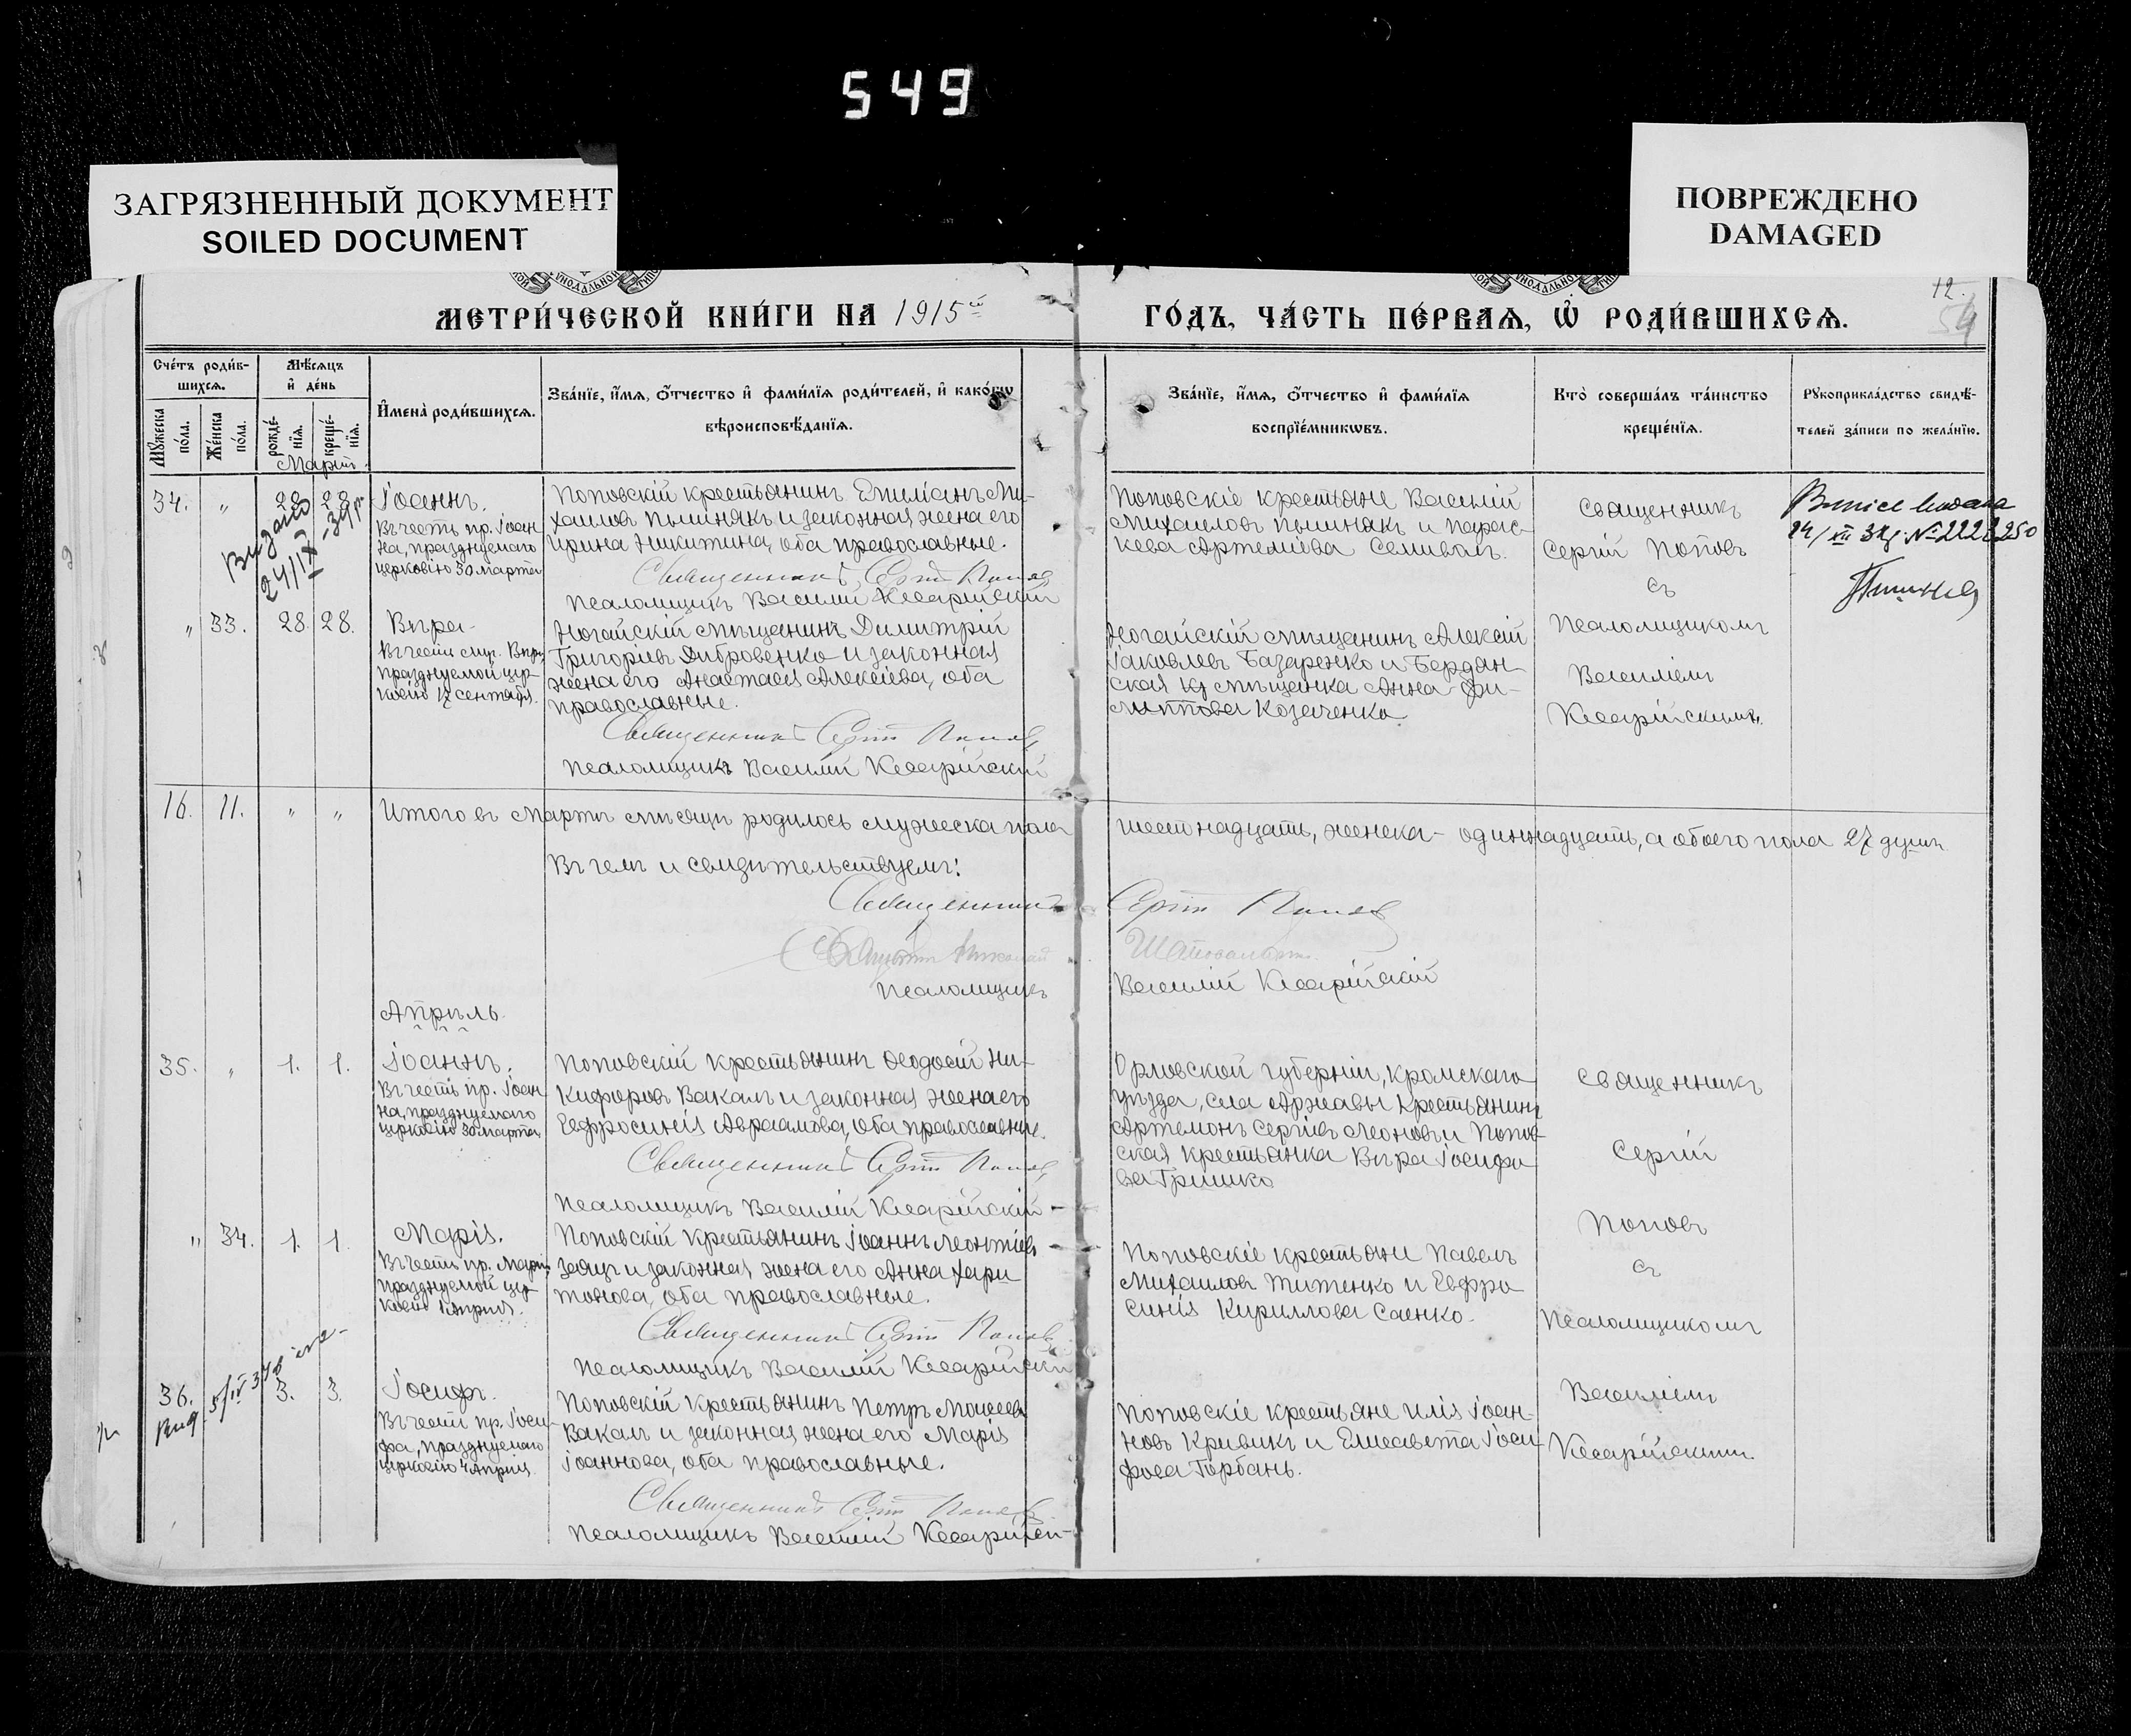 549
ЗАГРЯЗНЕННЫЙ ДОКУМЕНТ
SOILED DOCUMENT
ПОВРЕЖДЕНО
DAMAGED
12.
54
МЕТРИ́ЧЕСКОЙ КНИ́ГИ НА 1915й ГО́ДЪ, ЧА́СТЬ ПЕ́РВАѦ, Ѡ҆ РОДИ́ВШИХСѦ.
Сче́тъ роди́в-
шихсѧ.
Мѣ́сѧцъ
и҆ де́нь
Мꙋ́жеска
по́ла.
Же́нска
по́ла.
рожде́-
нїѧ.
креще́-
нїѧ.
И҆мена̀ роди́вшихсѧ.
Зва́нїе, и҆́мѧ, ѻ҆́тчество и҆ фами́лїѧ роди́телей, и҆ како́гѡ
вѣроисповѣ́данїѧ.
Зва́нїе, и҆́мѧ, ѻ҆́тчество и҆ фами́лїѧ
воспрїе́мникѡвъ.
Кто̀ соверша́лъ та́инство
креще́нїѧ.
Рꙋкоприкла́дство свидѣ́-
телей за́писи по жела́нїю.
Мартъ.
34. " 28 28
Видано
24/IX-39р
Іоаннъ.
Въ честь пр. Іоан
на, празднуемаго
церковію 30 марта
Поповскій крестьянинъ Емиліанъ Ми-
хаиловъ Пшинякъ и законная жена его
Ирина Никитина, оба православные.
Священникъ Сергій Поповъ
Псаломщикъ Василій Кесарійскій
Поповскіе крестьяне Василій
Михаиловъ Пшинякъ и Парас-
кева Артеміева Селиванъ.
Священникъ
Сергій Поповъ
съ
Псаломщикомъ
Василіемъ
Кесарійскимъ.
" 33. 28. 28.
Вѣра
Въ честь муч. Вѣры,
празднуемой цер-
ковію 17 сентября.
Ногайскій мѣщанинъ Димитрій
Григоріевъ Дибровенко и законная
жена его Анастасія Алексіева, оба
православные.
Священникъ Сергій Поповъ
Псаломщикъ Василій Кесарійскій
Ногайскій мѣщанинъ Алексій
Іаковлевъ Базаренко и Бердян-
ская мѣщанка Анна Фи-
липпова Козаченко
16. 11. " " Итого въ мартѣ мѣсяцѣ родилось мужеска пола шестнадцать, женска - одиннадцать, а обоего пола 27 душъ
Въ чемъ и свидѣтельствуемъ:
Священникъ Сергій Поповъ
Николай
Псаломщикъ Василій Кесарійскій
Апрѣль.
35. " 1. 1.
Іоаннъ.
Въ честь пр. Іоан
на, празднуемаго
церковію 30 марта
Поповскій крестьянинъ Ѳеодосій Ни-
кифоровъ Вакалъ и законная жена его
Евфросинія Авраамова, оба православные.
Священникъ Сергій Поповъ
Псаломщикъ Василій Кесарійскій
Орловской губерніи, Кромскаго
уѣзда, села Аржавы крестьянинъ
Артемонъ Сергіевъ Леоновъ и Попов-
ская крестьянка Вѣра Іосифо
ва Гришко
Священникъ
Сергій
Поповъ
съ
Псаломщикомъ
Василіемъ
Кесарійскимъ
" 34. 1. 1.
Марія.
Въ честь пр. Маріи,
празднуемой цер-
ковію 1 апрѣля.
Поповскій крестьянинъ Іоаннъ Леонтіевъ
Заяцъ и законная жена его Анна Хари
тонова, оба православные.
Священникъ Сергій Поповъ
Псаломщикъ Василій Кесарійскій
Поповскіе крестьяне Павелъ
Михаиловъ Титенко и Евфро
синія Кириллова Саенко.
36. 3. 3.
Іосифъ.
Въ честь пр. Іоси-
фа, празднуемаго
церковію 4 апрѣля
Поповскій крестьянинъ Петръ Моисеевъ
Вакалъ и законная жена его Марія
Іоаннова, оба православные.
Священникъ Сергій Поповъ
Псаломщикъ Василій Кесарійск
Поповскіе крестьяне Илія Іоан-
новъ Кривикъ и Елисавета Іоси
фова Горбань.